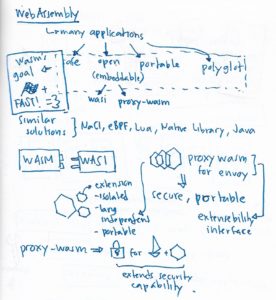 WebAssembly
↳many applications
Wasm's goal
FAST! =3
open (embeddable)
portable
polyglot
wasi
proxy-wasm
Similar solutions
NaCl, eBPF, Lua, Native Library, Java
WASM
WASI
proxy wasm for envoy
secure, portable
extensibility interface
extension
- isolated
- lang independent
- portable
proxy-wasm → for +
extends security capability.